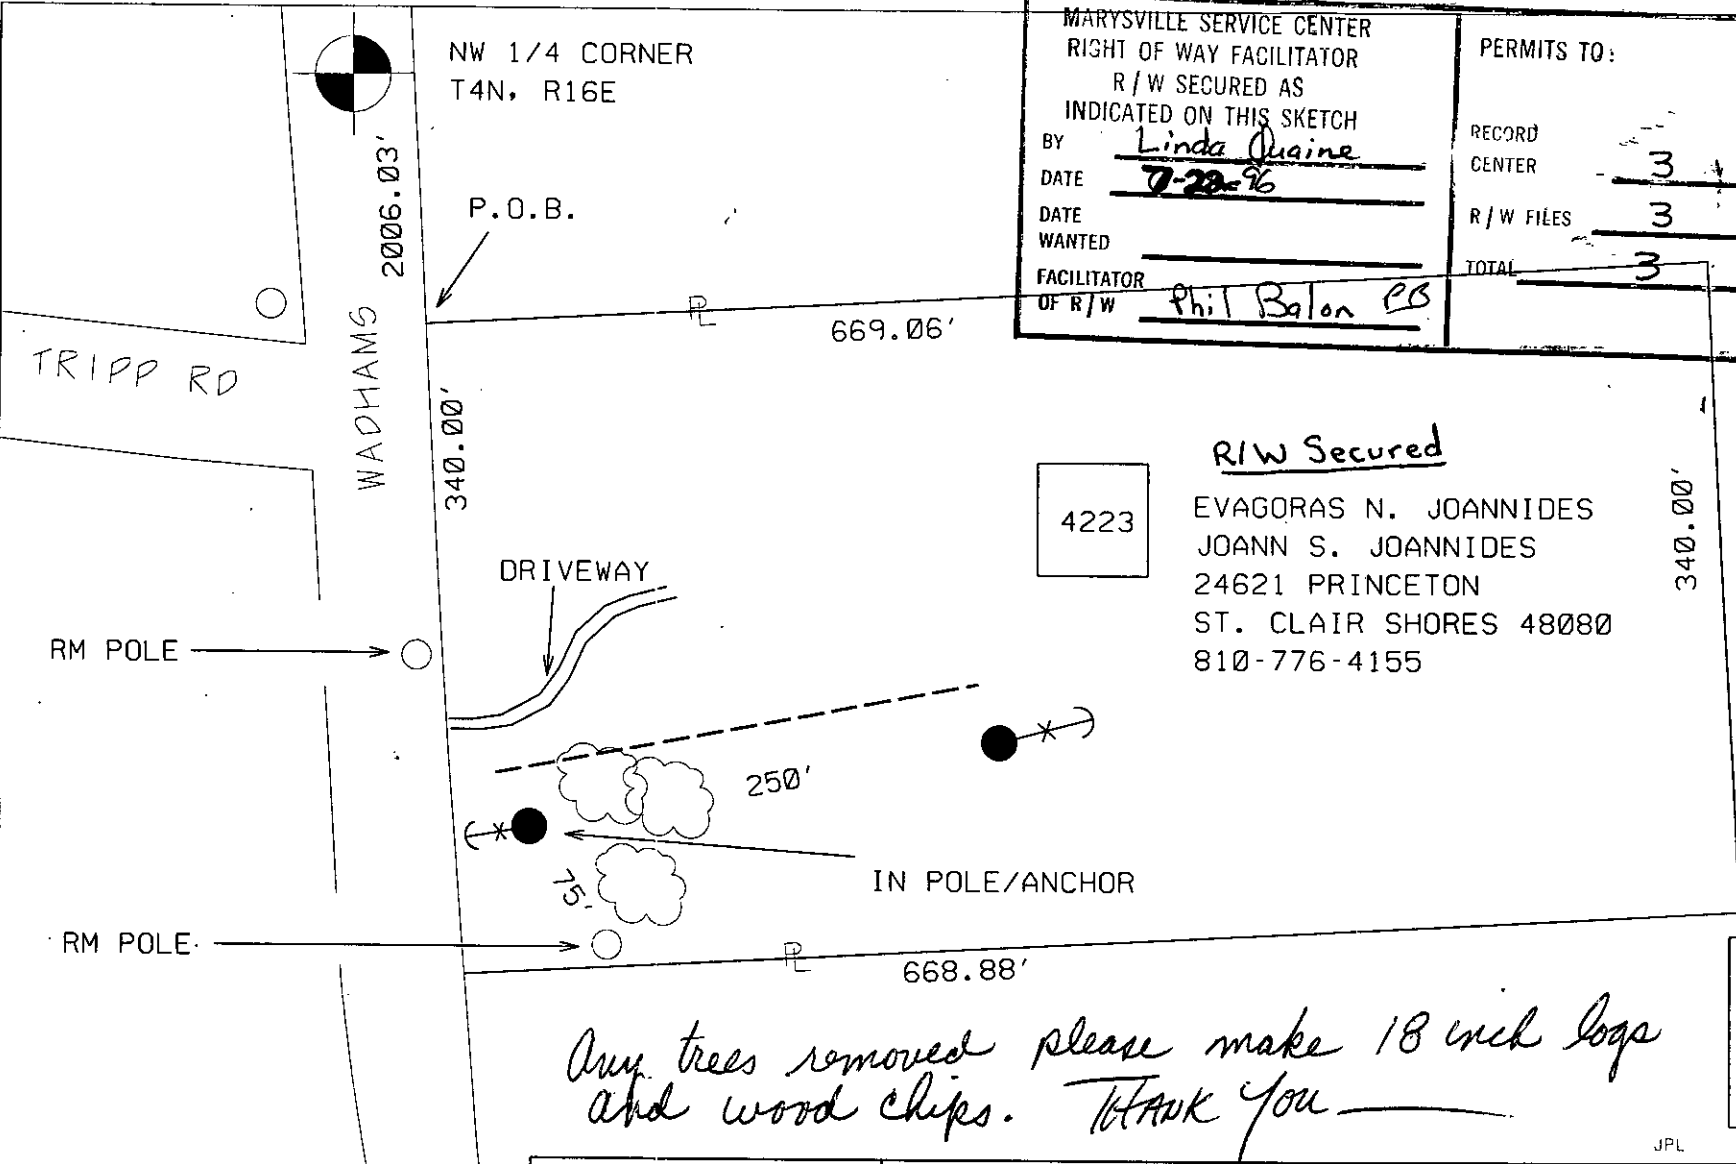 NW 1/4 CORNER
T4N, R16E
MARYSVILLE SERVICE CENTER
RIGHT OF WAY FACILITATOR
R/W SECURED AS
INDICATED ON THIS SKETCH
BY Linda Quaine
DATE
DATE
WANTED
FACILITATOR
OF R/W Phil Balon PB
PERMITS TO:
RECORD
CENTER 3
R/W FILES 3
TOTAL 3
2006.03'
P.O.B.
PL
669.06'
TRIPP RD
WADHAMS
340.00'
R/W Secured
4223
EVAGORAS N. JOANNIDES
JOANN S. JOANNIDES
24621 PRINCETON
ST. CLAIR SHORES 48080
810-776-4155
340.00'
DRIVEWAY
RM POLE
250'
75'
IN POLE/ANCHOR
RM POLE
PL
668.88'
Any trees removed please make 18 inch logs
and wood chips. THANK You
JPL